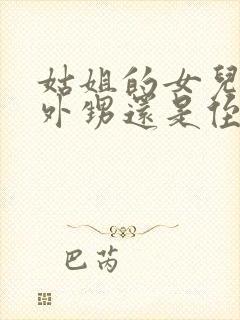 姑姐的女兒
外甥還是侄
巴芮